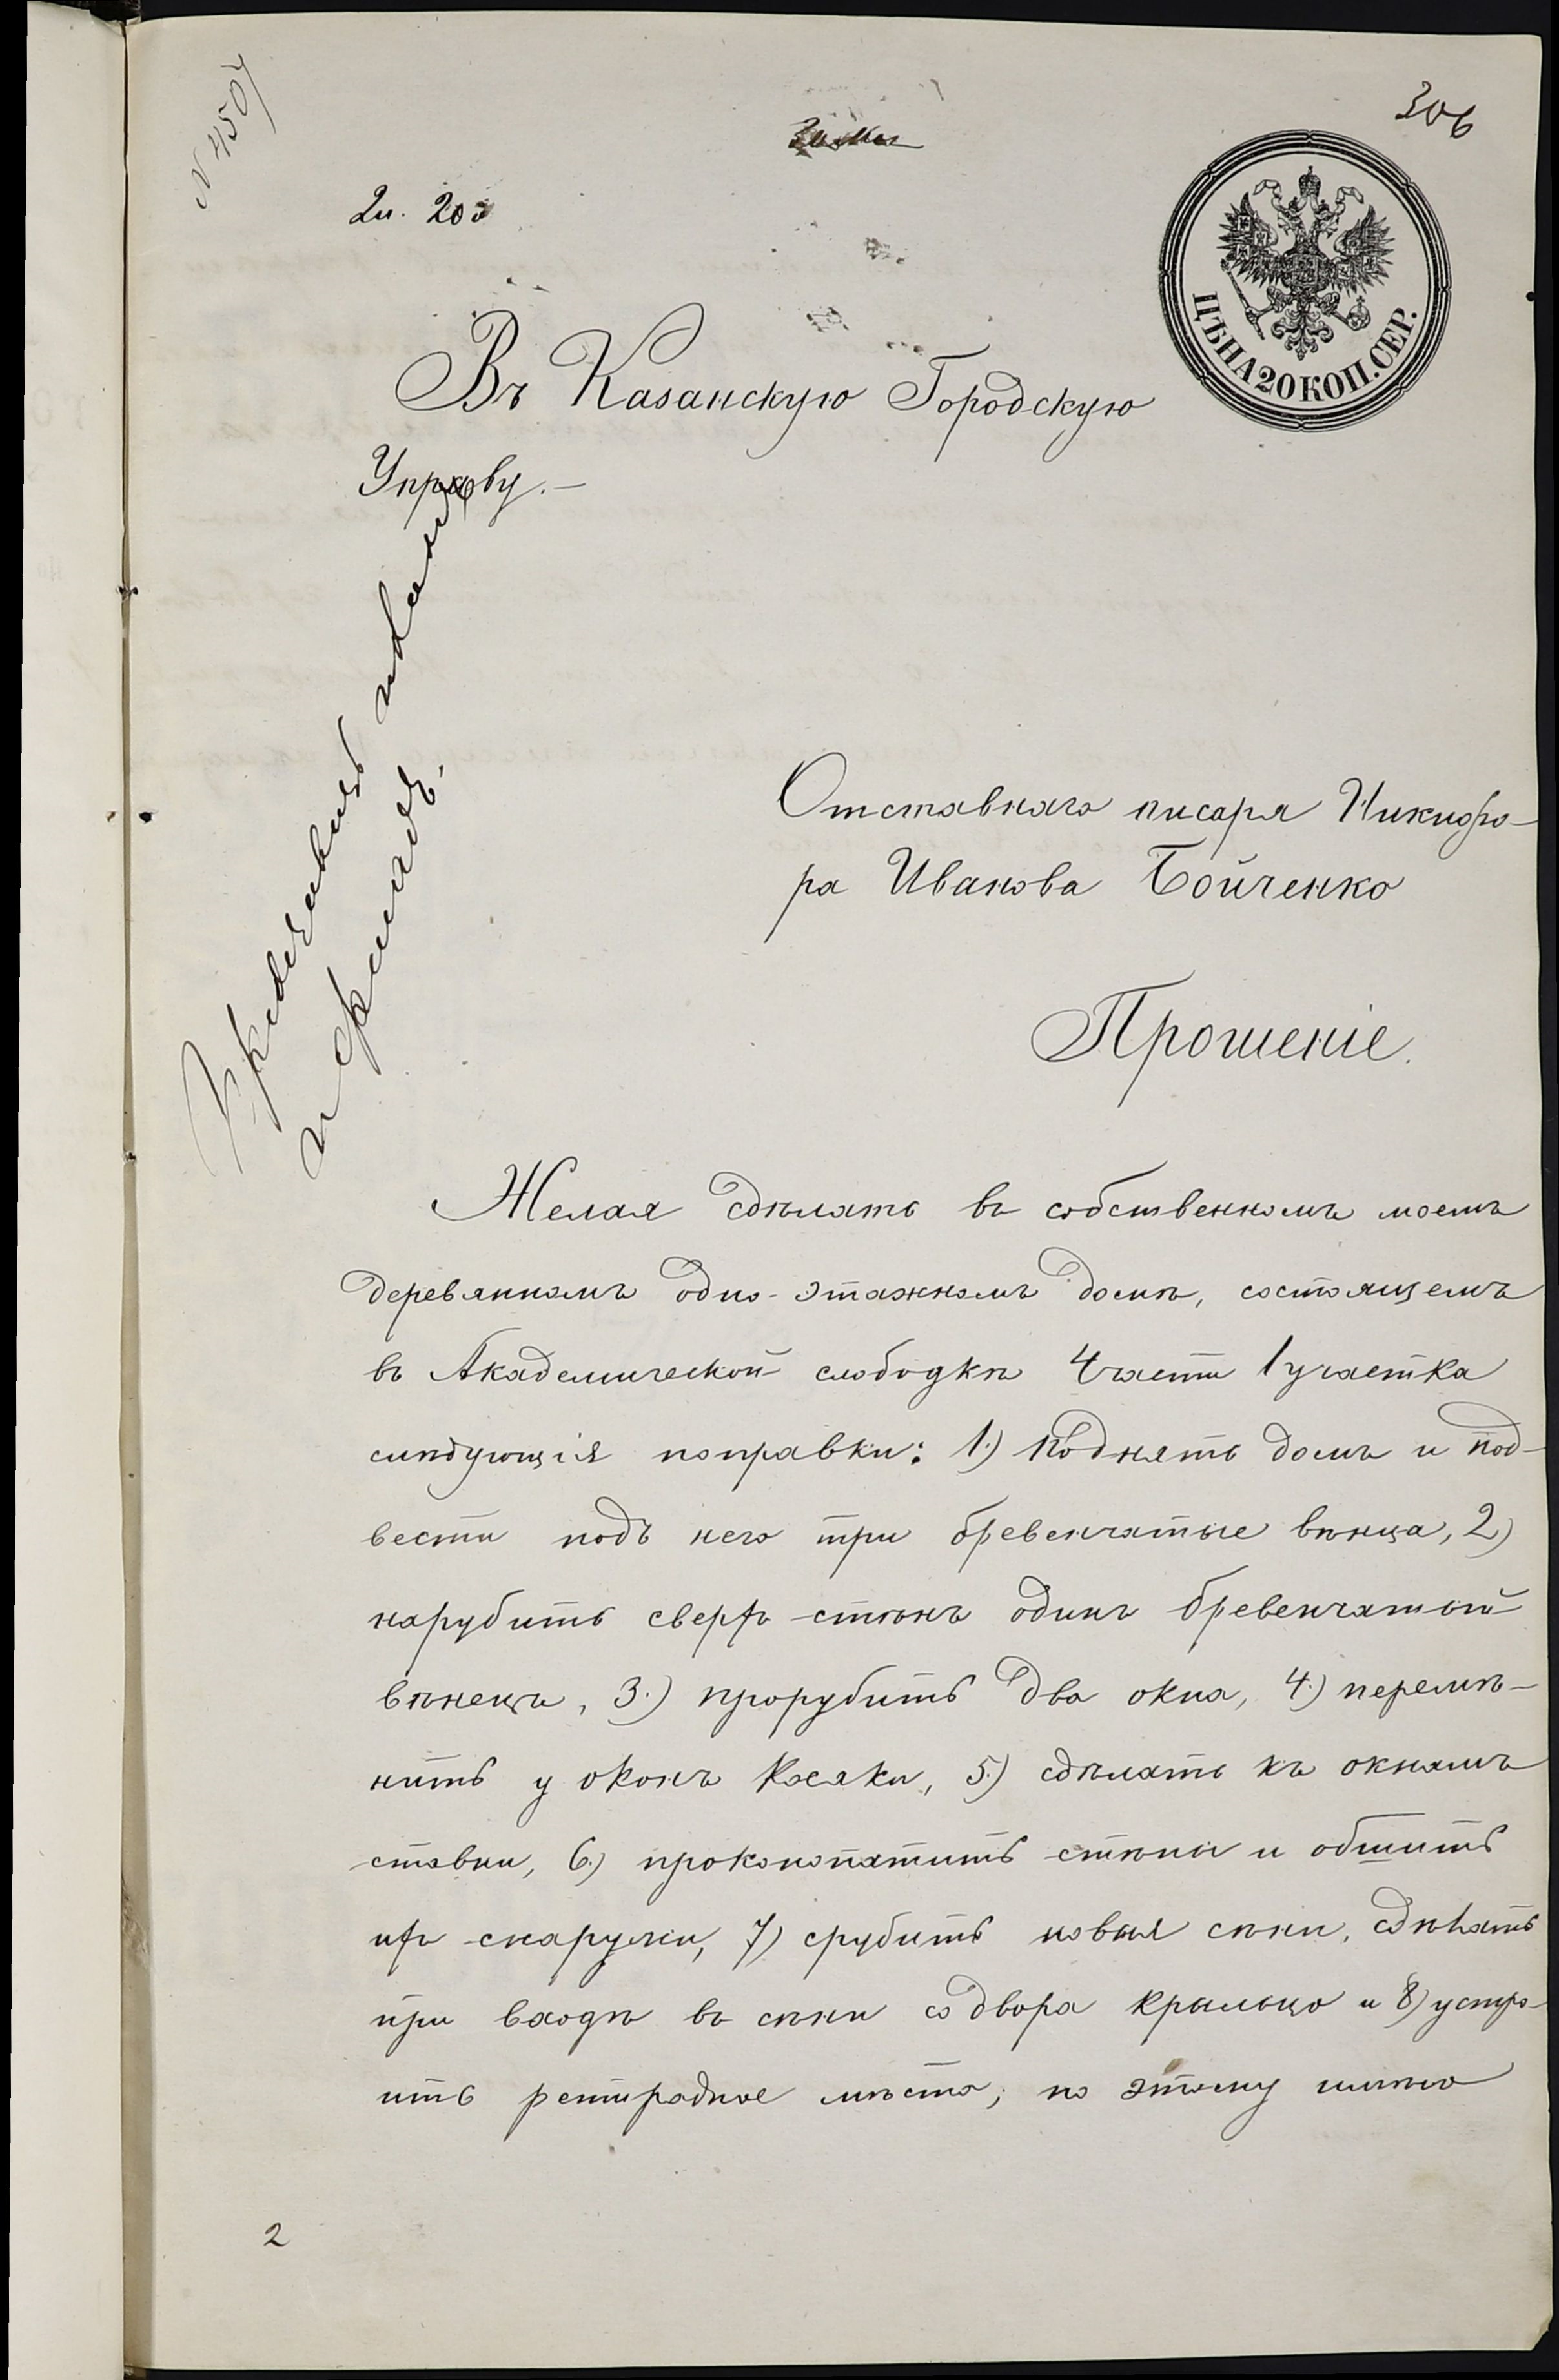 306
N 4507
2и. 20
ЦѢНА 20 КОП. СЕР.
Въ Казанскую Городскую
Управу.—
Отставнаго писаря Никифо-
ра Иванова Бойченко
Прошеніе.
Желая сдѣлать въ собственномъ моемъ
деревянномъ одно-этажномъ домѣ, состоящемъ
въ Академической слободкѣ 4 части 1 участка
слѣдующія поправки: 1.) поднять домъ и под-
вести подъ него три бревенчатые вѣнца, 2)
нарубить сверхъ стѣнъ одинъ бревенчатый
вѣнецъ, 3.) прорубить два окна, 4.) перемѣ-
нить у оконъ косяки, 5.) сдѣлать къ окнамъ
ставни, 6.) проконопатить стѣны и обшить
ихъ снаружи, 7) срубить новыя сѣни, сдѣлать
при входѣ въ сѣни со двора крыльцо и 8) устро-
ить ретирадное мѣсто; по этому имѣю
2